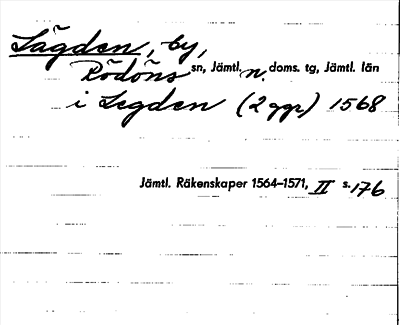 Lägden, by,
Rödöns sn, Jämtl. n. doms. tg, Jämtl. län
i Legden (2 ggr) 1568
Jämtl. Räkenskaper 1564-1571, II s. 176